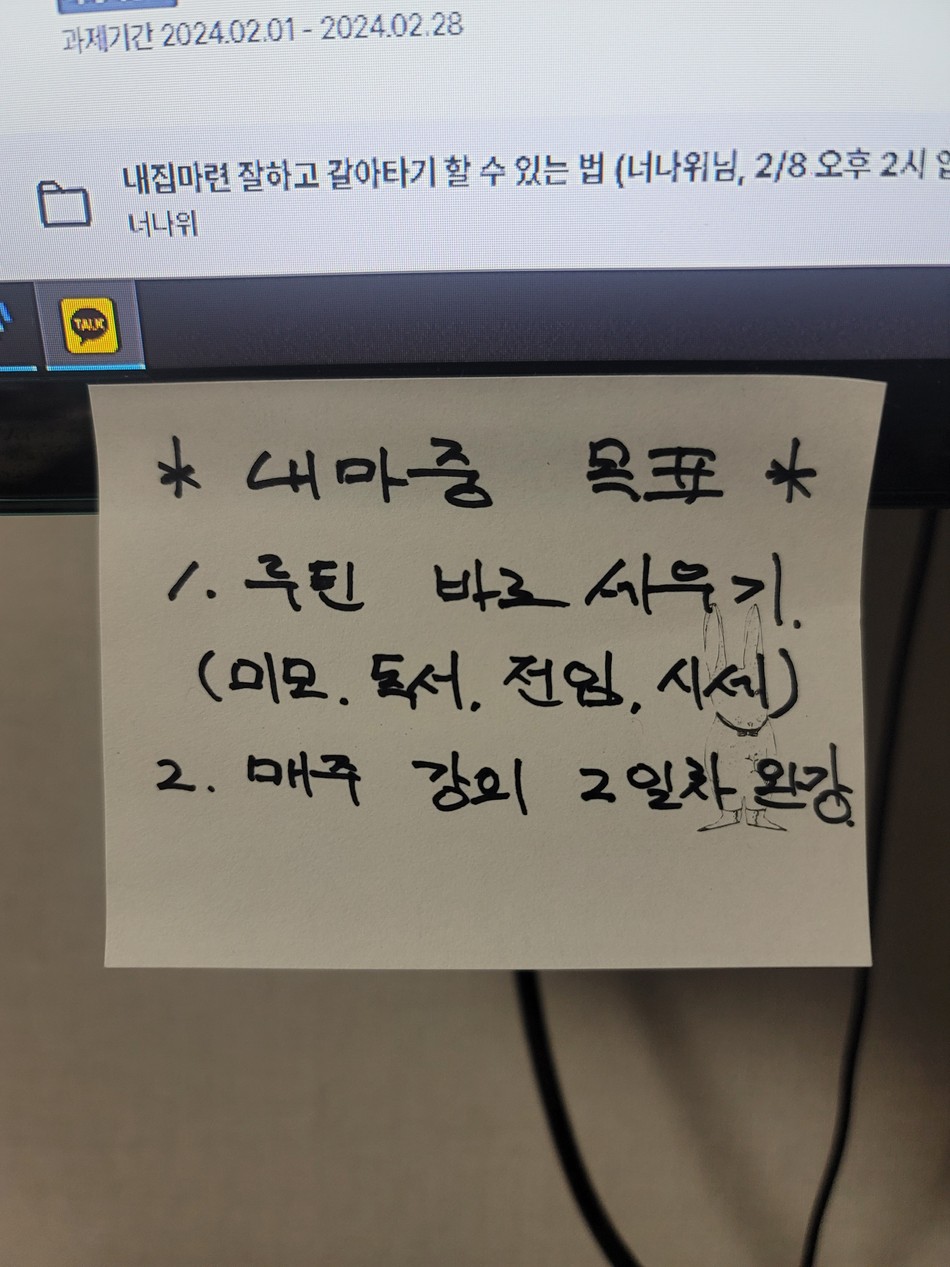 과제기간 2024.02.01 - 2024.02.28
내집마련 잘하고 갈아타기 할 수 있는 법 (너나위님, 2/8 오후 2시
너나위
TALK
* 내마중 목표 *
1. 루틴 바로 세우기.
(미모. 독서. 전임. 시세)
2. 매주 강의 2일차 완강.